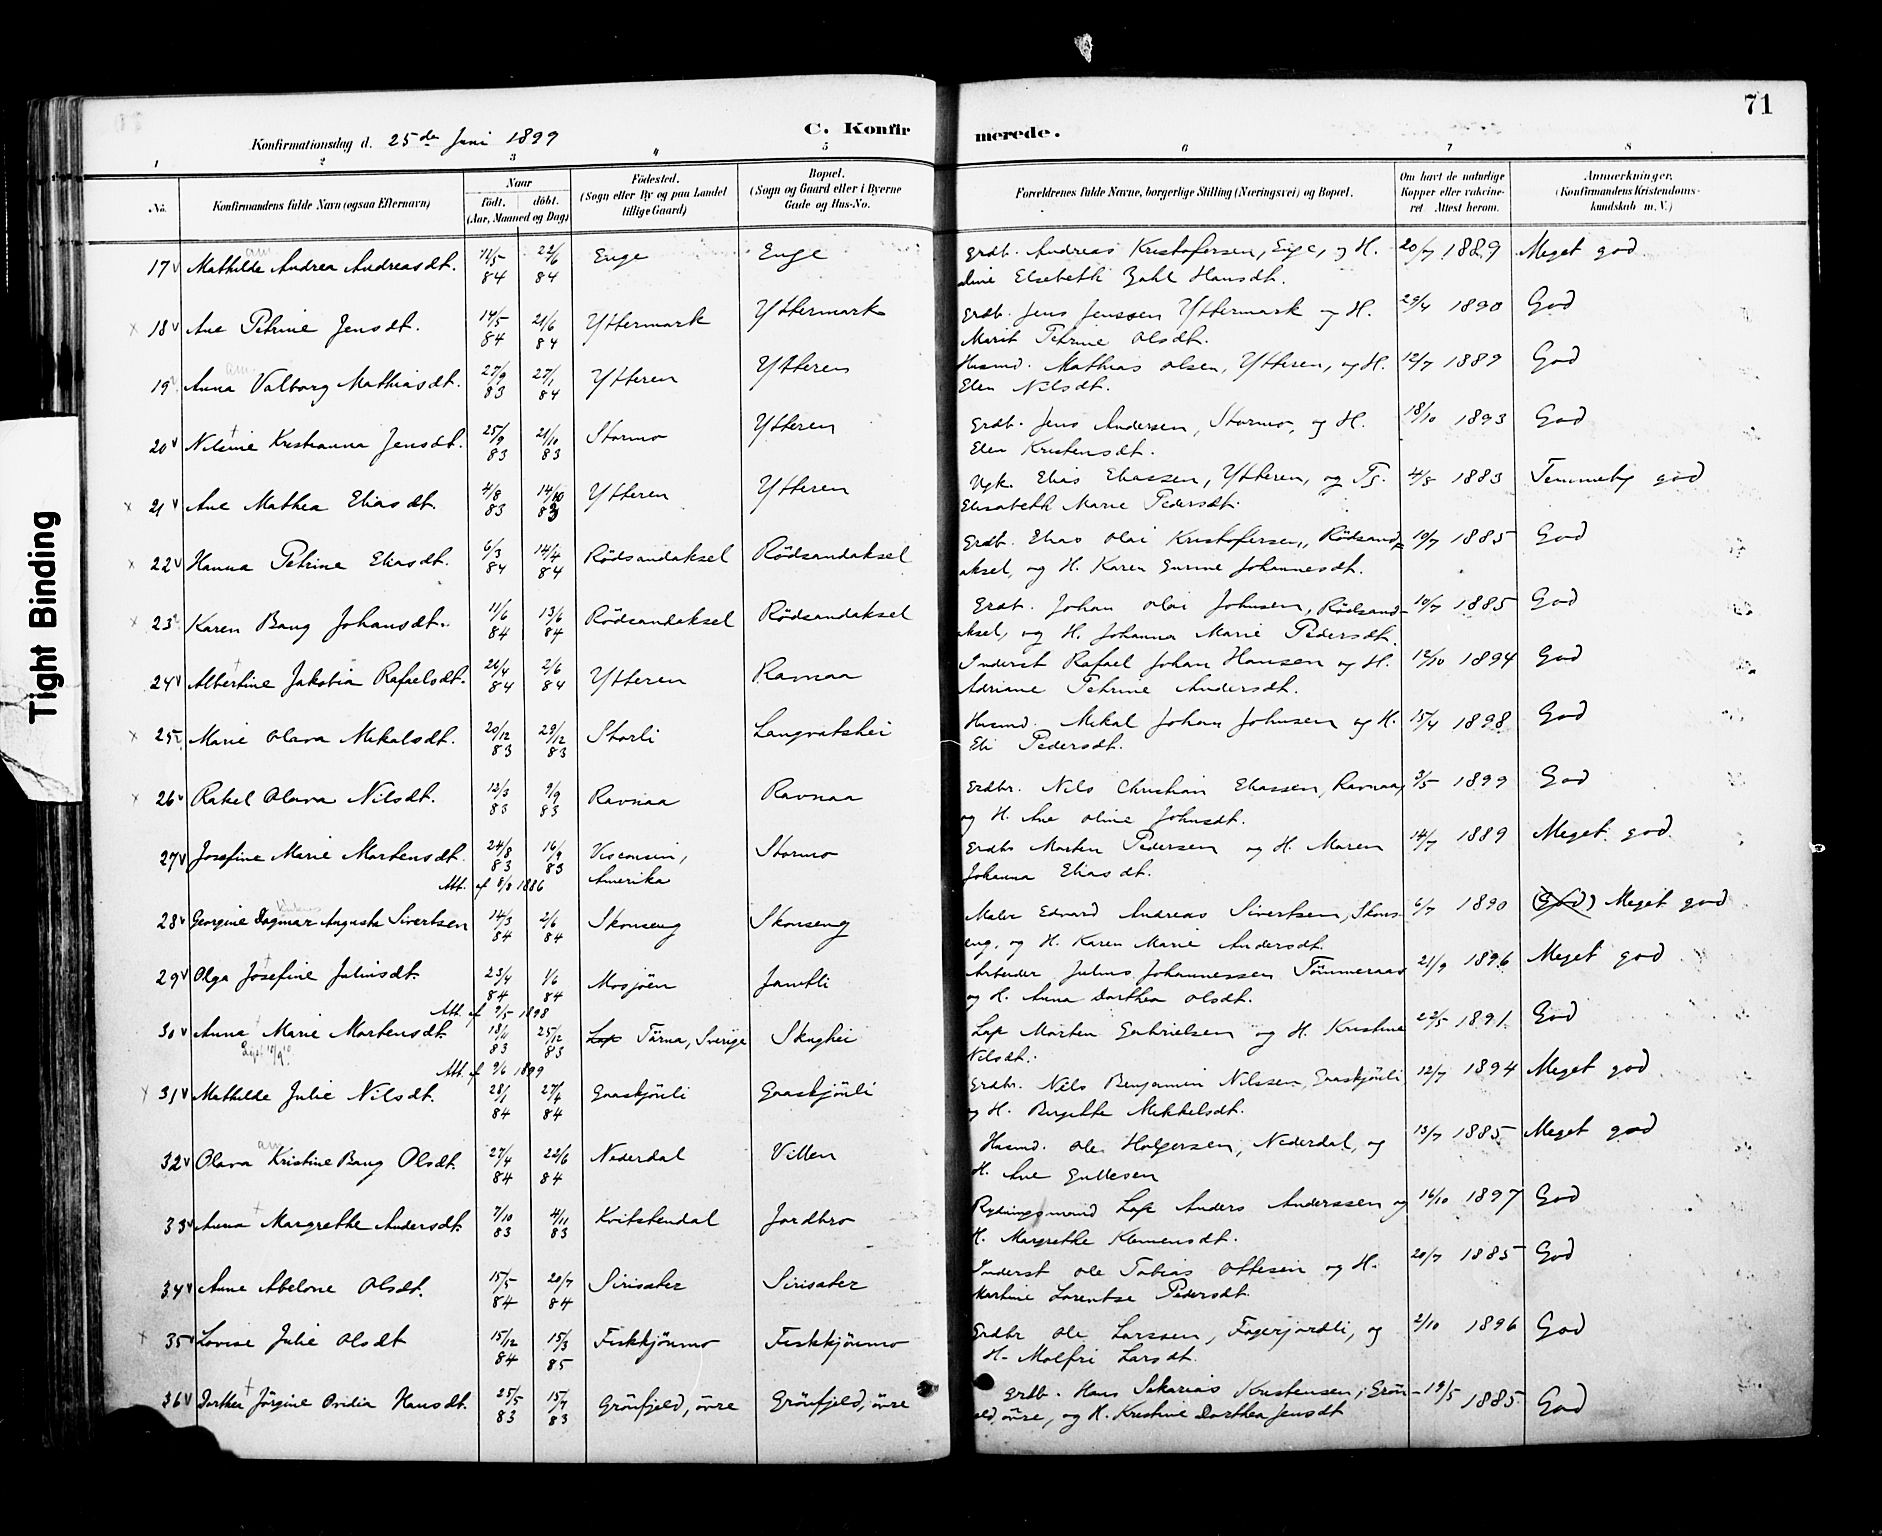 71
Konfirmationsdag d. 25de Juni 1899
C. Konfirmerede.
1 2 3 4 5 6 7 8
No.
Konfirmandens fulde Navn (ogsaa Efternavn)
Naar
født. døbt.
(Aar, Maaned og Dag)
Fødested.
(Sogn eller By og paa Landet
tillige Gaard)
Bopæl.
(Sogn og Gaard eller i Byerne
Gade og Hus-No.
Forældrenes fulde Navne, borgerlige Stilling (Næringsvei) og Bopæl.
Om havt de naturlige
Kopper eller vakcine-
ret. Attest herom.
Anmærkninger.
(Konfirmandens Kristendoms-
kundskab m. V.)
17 Mathilde Andrea Andreasdt. 84 22/6 84 Enge Enge Grdb. Andreas Kristofersen, Enge, og H. 20/7 1889 Meget god
Elsebeth Zahl Hansdt.
18 Ane Petrine Jensdt. 14/5 84 21/6 84 Yttermark Yttermark Grdb. Jens Jenssen Yttermark og H. 29/4 1890 God
Marit Petrine Olsdt.
19 Anna Valborg Mathiasdt. 27/9 83 27/1 84 Ytteren Ytteren Husmd. Mathias Olsen, Ytteren, og H. 12/7 1889 God
Elen Nilsdt.
20 Nilsine Kristianna Jensdt. 25/9 83 21/10 83 Stormo Ytteren Grdb. Jens Andersen, Stormo, og H. 18/10 1893 God
Elen Kristensdt.
21 Ane Mathea Eliasdt. 4/8 83 14/10 83 Ytteren Ytteren Ugk. Elias Eliassen, Ytteren, og Pg. 4/8 1883 Temmelig god
Elisabeth Marie Pedersdt.
22 Hanna Petrine Eliasdt. 6/3 84 14/4 84 Rödsandaksel Rödsandaksel Grdb. Elias Olai Kristofersen, Rödsand- 10/7 1885 God
aksel, og H. Karen Gurine Johannesdt.
23 Karen Bang Johansdt. 11/6 84 13/6 84 Rödsandaksel Rödsandaksel Grdb. Johan Olai Johnsen, Rödsand- 10/7 1885 God
aksel, og H. Johanna Marie Pedersdt.
24 Albertine Jakobia Rafaelsdt. 26/4 84 2/6 84 Ytteren Ravnaa Inderst Rafael Johan Hansen og H. 12/10 1894 God
Adriane Petrine Andersdt.
25 Marie Olava Mikalsdt. 20/12 83 29/12 83 Storli Langvatshei Husmd. Mikal Johan Johnsen og H. 15/4 1898 God
Eli Pedersdt.
26 Rakel Olava Nilsdt. 12/3 83 9/9 83 Ravnaa Ravnaa Grdbr. Nils Christian Eliassen, Ravnaa, 3/5 1899 God
og H. Ane Oline Johnsdt.
27 Josefine Marie Mortensdt. 24/8 83 16/9 83 Visconsin, Stormo Grdbr Morten Pedersen og H. Maren 14/7 1889 Meget god
Att. af 8/8 1886 Amerika Johanna Eliasdt.
28 Georgine Dagmar Augusta Sivertsen 14/3 84 2/6 84 Skonseng Skonseng Maler Edvard Andreas Sivertsen, Skons- 6/7 1890 (God) Meget god
eng, og H. Karen Marie Andersdt.
29 Olga Josefine Juliusdt. 23/4 84 1/6 84 Mosjöen Jamtli Arbeider Julius Johannessen Tömmeraas 21/9 1896 Meget god
Att. af 9/5 1898 og H. Anna Dorthea Olsdt.
30 Anna Marie Mortensdt. 18/11 83 25/12 83 Lap Tärna, Sverige Skughei Lap Morten Gabrielsen og H. Kristine 22/5 1891 God
Att. af 9/6 1899 Nilsdt.
31 Mathilde Julie Nilsdt. 28/1 84 27/4 84 Graaskjönli Graaskjönli Grdbr. Nils Benjamin Nilssen, Graaskjönli, 12/7 1894 Meget god
og H. Birgitte Mikkelsdt.
32 Olava Kristine Bang Olsdt. 27/4 84 22/6 84 Nederdal Villen Husmd. Ole Holgersen, Nederdal, og 13/7 1885 Meget god
H. Ane Gullesen
33 Anna Margrethe Andersdt. 7/10 83 4/11 83 Kvitstendal Jordbro Rydningsmand Lap Anders Anderssen og 16/10 1897 God
H. Margrethe Klemensdt.
34 Anne Abelone Olsdt. 15/5 84 20/7 84 Sirisæter Sirisæter Inderst Ole Tobias Ottesen og H. 20/7 1885 God
Martine Lorentse Pedersdt.
35 Lovise Julie Olsdt 15/12 84 15/3 85 Fiskkjönmo Fiskkjönmo Grdbr Ole Larssen, Fagerjordli, og 2/10 1896 God
H. Malfri Larsdt.
36 Dorthea Jörgine Ovidia Hansdt. 25/5 83 15/7 83 Grönfjeld, övre Grönfjeld, övre Grdb. Hans Sakarias Kristensen, Grön- 19/5 1885 God
eld, övre, og H. Kristine Dorthea Jensdt
Tight Binding